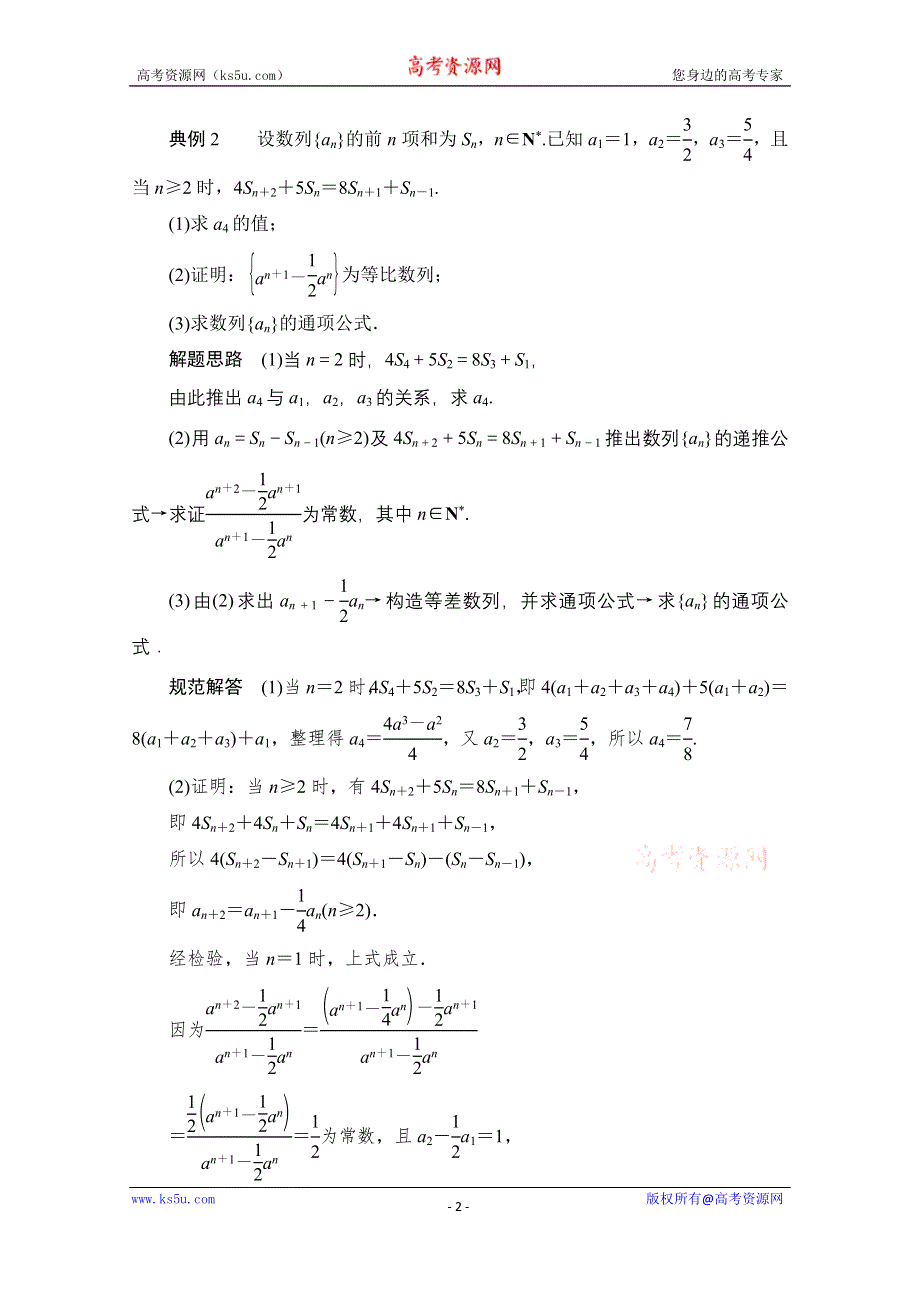 高考资源网（ks5u.com） 高考资源网 您身边的高考专家
典例2 设数列{aₙ}的前n项和为Sₙ，n∈N*.已知a₁＝1，a₂＝3/2，a₃＝5/4，且
当n≥2时，4Sₙ₊₂＋5Sₙ＝8Sₙ₊₁＋Sₙ₋₁.
(1)求a₄的值；
(2)证明：{aⁿ⁺¹－1/2aⁿ}为等比数列；
(3)求数列{aₙ}的通项公式．
解题思路 (1)当n＝2时，4S₄＋5S₂＝8S₃＋S₁，
由此推出a₄与a₁，a₂，a₃的关系，求a₄.
(2)用aₙ＝Sₙ－Sₙ₋₁(n≥2)及4Sₙ₊₂＋5Sₙ＝8Sₙ₊₁＋Sₙ₋₁推出数列{aₙ}的递推公
式→求证(aⁿ⁺²－1/2aⁿ⁺¹)/(aⁿ⁺¹－1/2aⁿ)为常数，其中n∈N*.
(3)由(2)求出aₙ₊₁－1/2aₙ→构造等差数列，并求通项公式→求{aₙ}的通项公
式．
规范解答 (1)当n＝2时，4S₄＋5S₂＝8S₃＋S₁，即4(a₁＋a₂＋a₃＋a₄)＋5(a₁＋a₂)＝
8(a₁＋a₂＋a₃)＋a₁，整理得a₄＝(4a³－a²)/4，又a₂＝3/2，a₃＝5/4，所以a₄＝7/8.
(2)证明：当n≥2时，有4Sₙ₊₂＋5Sₙ＝8Sₙ₊₁＋Sₙ₋₁，
即4Sₙ₊₂＋4Sₙ＋Sₙ＝4Sₙ₊₁＋4Sₙ₊₁＋Sₙ₋₁，
所以4(Sₙ₊₂－Sₙ₊₁)＝4(Sₙ₊₁－Sₙ)－(Sₙ－Sₙ₋₁)，
高考资源网
即aₙ₊₂＝aₙ₊₁－1/4aₙ(n≥2)．
经检验，当n＝1时，上式成立．
因为(aⁿ⁺²－1/2aⁿ⁺¹)/(aⁿ⁺¹－1/2aⁿ)＝((aⁿ⁺¹－1/4aⁿ)－1/2aⁿ⁺¹)/(aⁿ⁺¹－1/2aⁿ)
＝(1/2(aⁿ⁺¹－1/2aⁿ))/(aⁿ⁺¹－1/2aⁿ)＝1/2为常数，且a₂－1/2a₁＝1，
www.ks5u.com - 2 - 版权所有@高考资源网